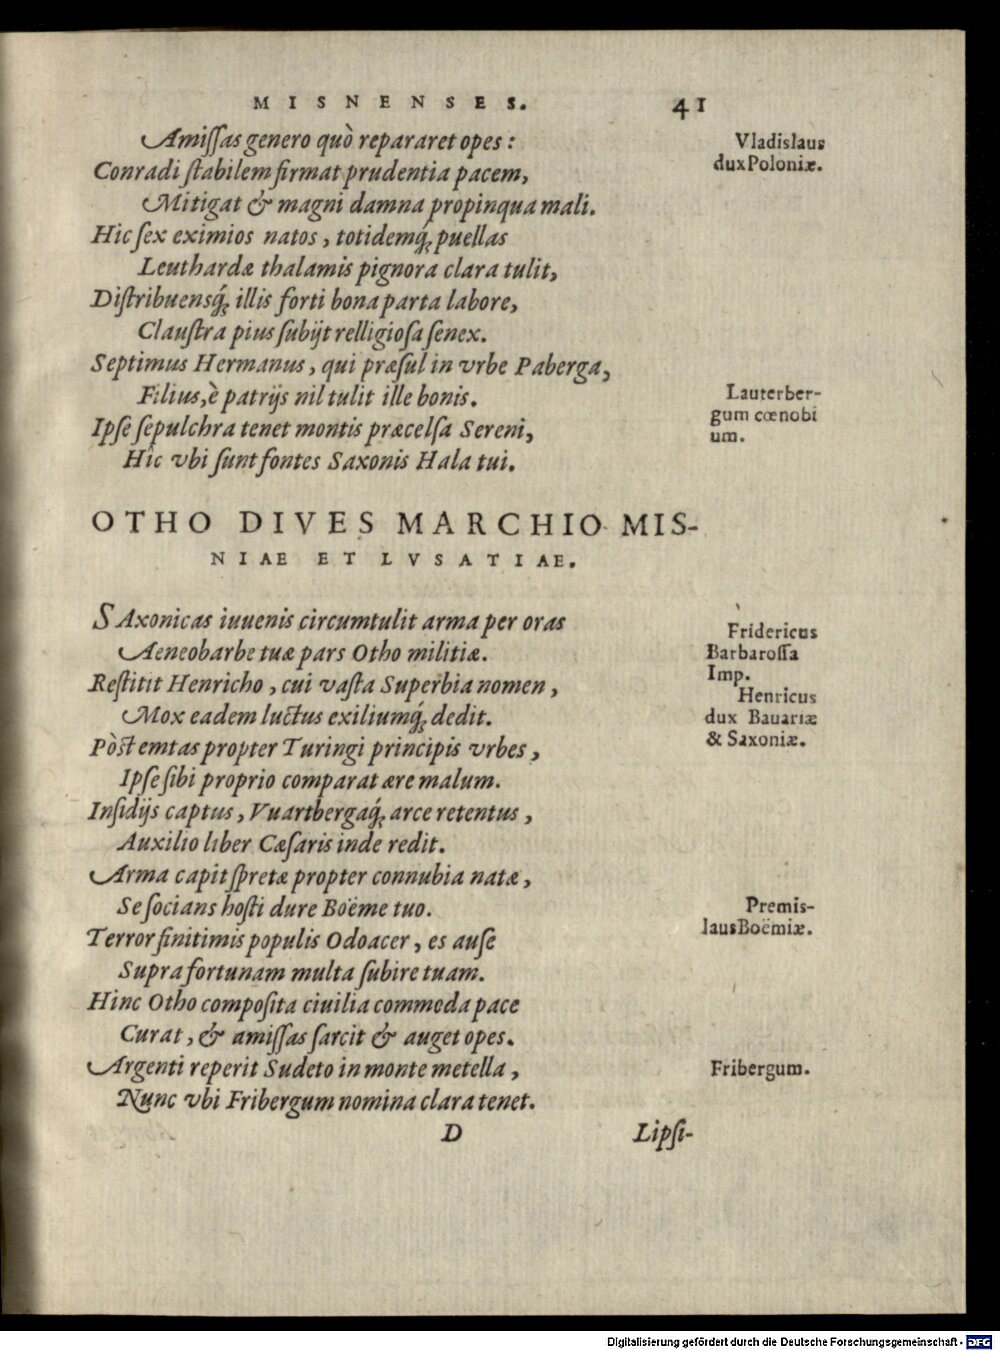 MISNENSES. 41
Amiſſas genero quò repararet opes :
Vladislaus
dux Poloniæ.
Conradi ſtabilem firmat prudentia pacem,
Mitigat & magni damna propinqua mali.
Hic ſex eximios natos, totidemq́; puellas
Leuthardæ thalamis pignora clara tulit,
Diſtribuensq́; illis forti bona parta labore,
Clauſtra pius ſubijt relligioſa ſenex.
Septimus Hermanus, qui præſul in vrbe Paberga,
Filius, è patrijs nil tulit ille bonis.
Lauterber-
gum cœnobi
um.
Ipſe ſepulchra tenet montis præcelſa Sereni,
Hic vbi ſunt fontes Saxonis Hala tui.
OTHO DIVES MARCHIO MIS-
NIAE ET LVSATIAE.
SAxonicas iuuenis circumtulit arma per oras
Aeneobarbe tuæ pars Otho militiæ.
Fridericus
Barbaroſſa
Imp.
Reſtitit Henricho, cui vaſta Superbia nomen,
Mox eadem luctus exiliumq́; dedit.
Henricus
dux Bauariæ
& Saxoniæ.
Pòst emtas propter Turingi principis vrbes,
Ipſe ſibi proprio comparat ære malum.
Inſidijs captus, Vuartbergaq́; arce retentus,
Auxilio liber Cæſaris inde redit.
Arma capit ſpretæ propter connubia natæ,
Se ſocians hoſti dure Boëme tuo.
Premis-
laus Boëmiæ.
Terror finitimis populis Odoacer, es auſe
Supra fortunam multa ſubire tuam.
Hinc Otho compoſita ciuilia commoda pace
Curat, & amiſſas ſarcit & auget opes.
Argenti reperit Sudeto in monte metella,
Fribergum.
Nunc vbi Fribergum nomina clara tenet.
D Lipſi-
Digitalisierung gefördert durch die Deutsche Forschungsgemeinschaft - DFG